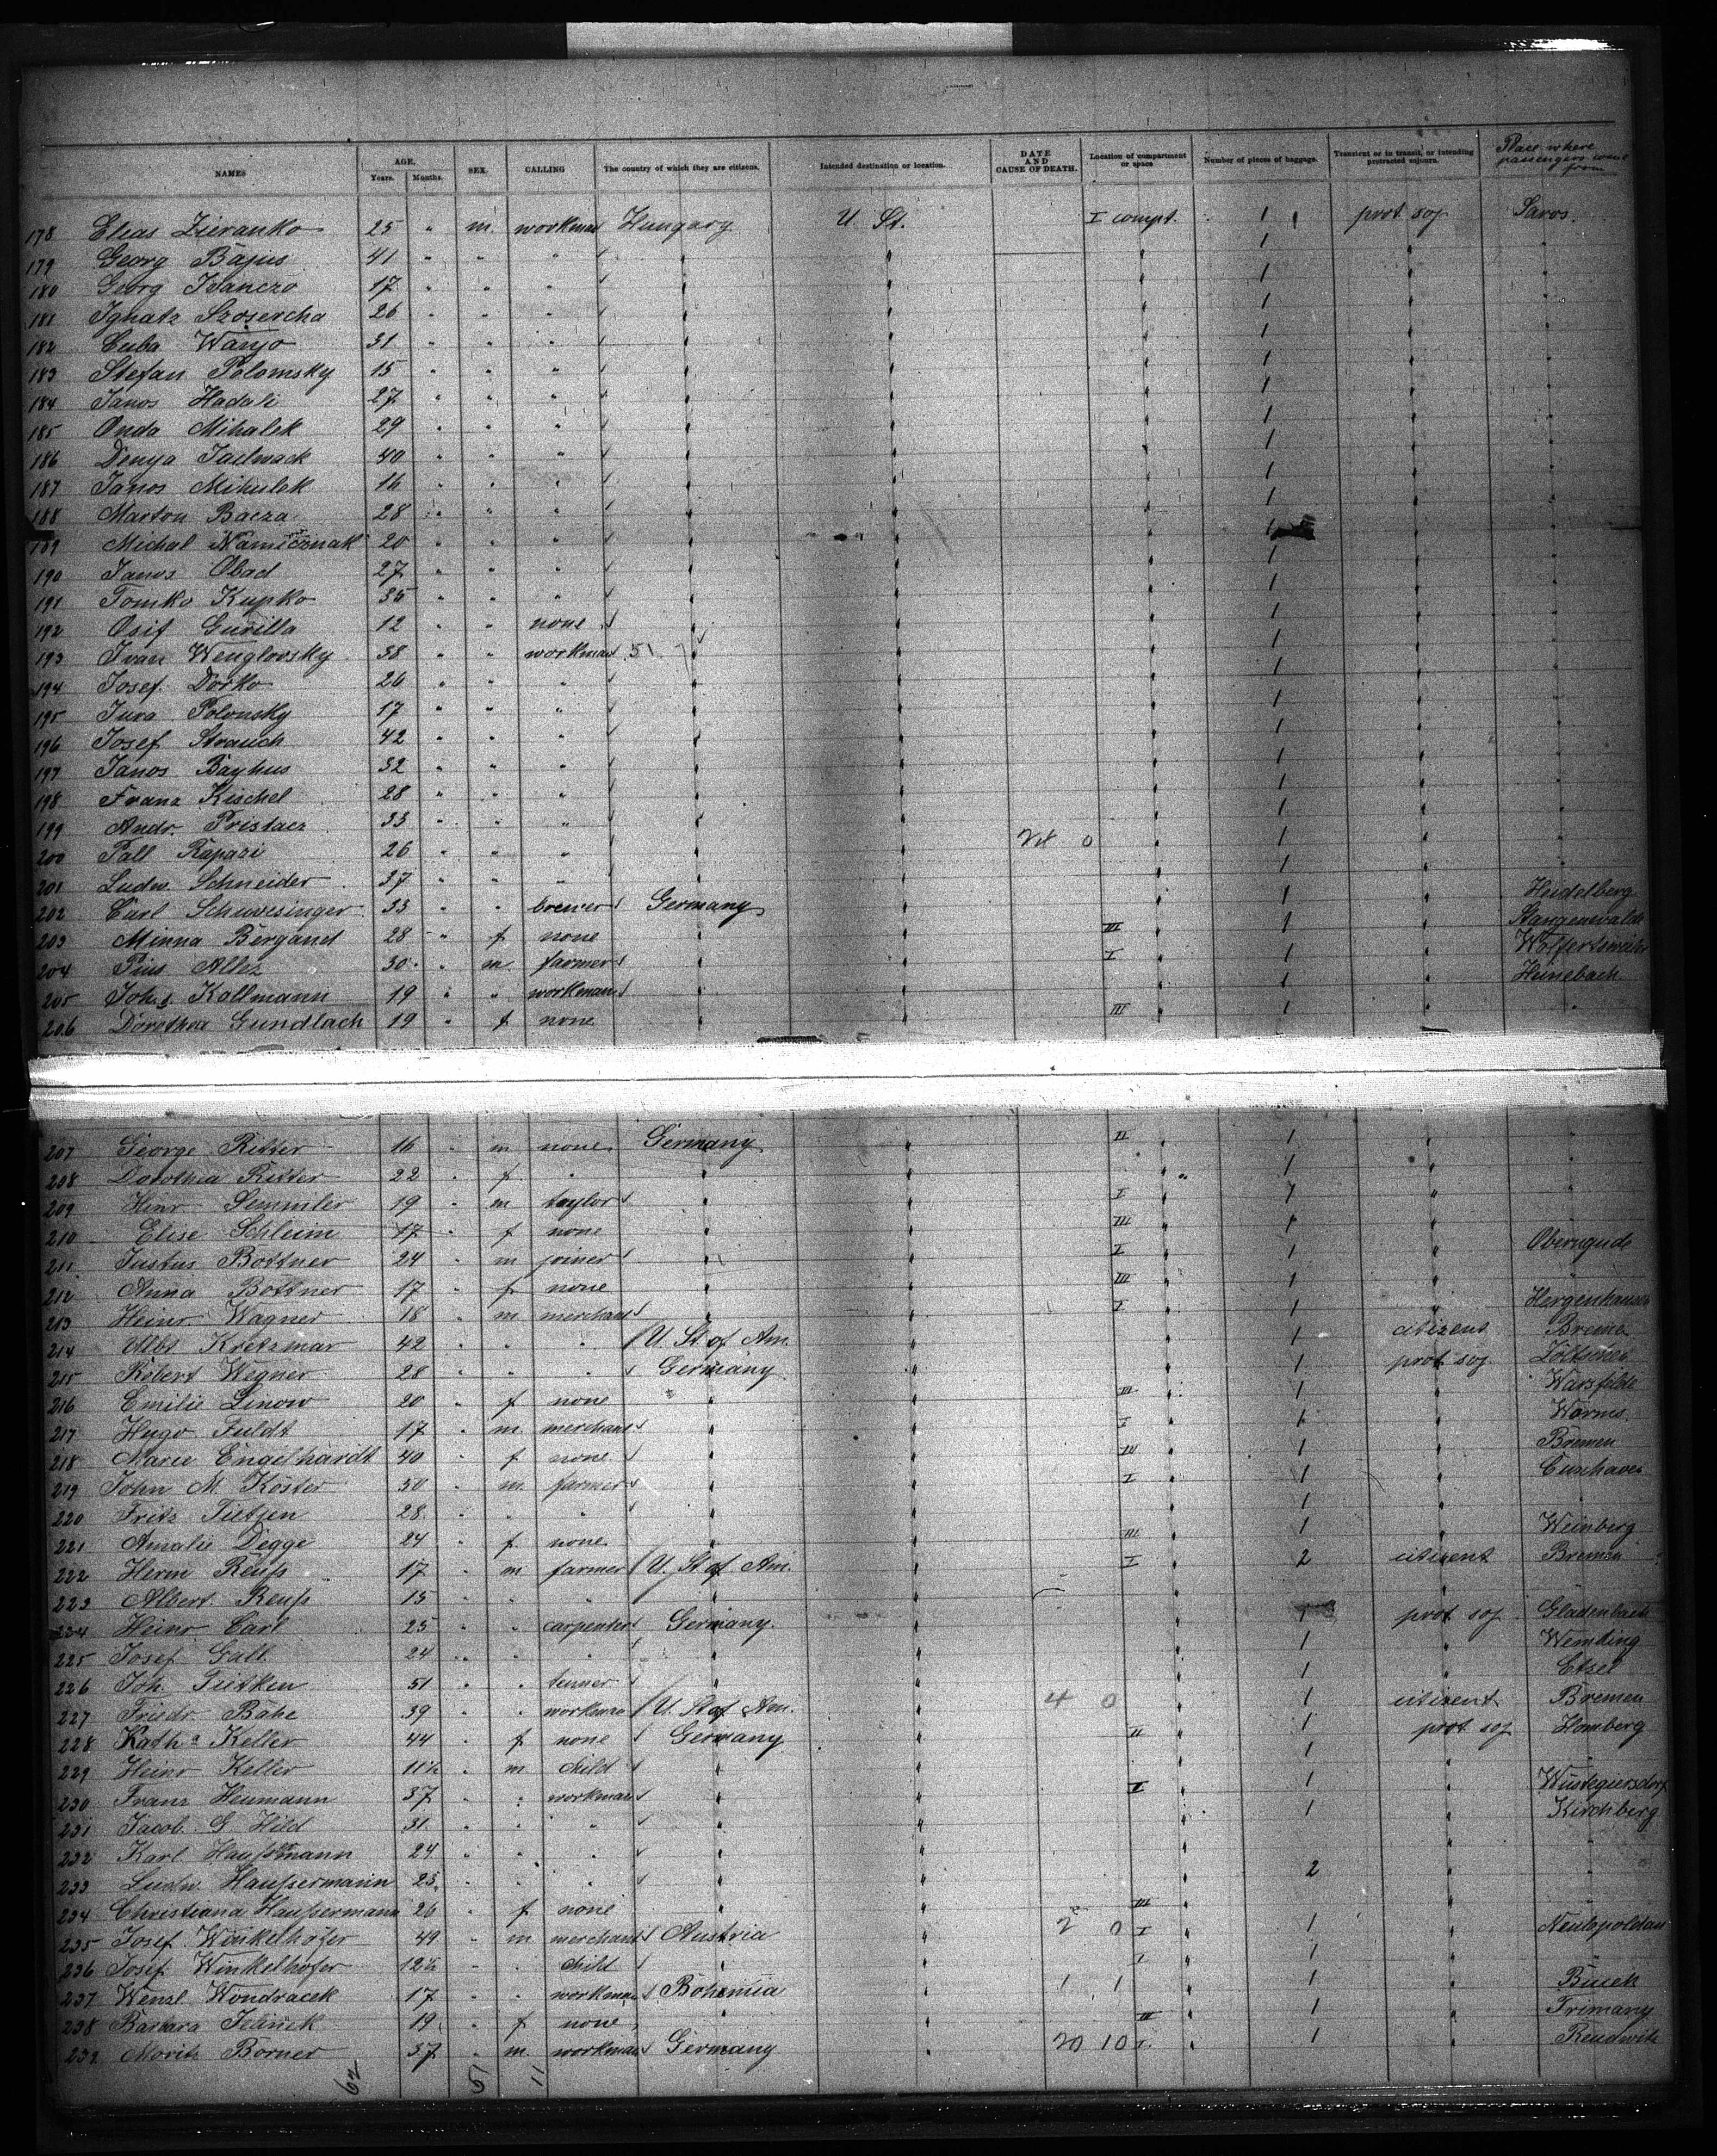 NAMES AGE, Years. Months. SEX. CALLING The country of which they are citizens. Intended destination or location. DATE AND CAUSE OF DEATH. Location of compartment or space Number of pieces of baggage. Transient or in transit, or intending protracted sojourn. Place where passengers come from
178 Elias Zieranko 25 " m. workman Hungary U. St. I compt. 1 prot. soj. Saros.
179 Georg Bajus 41 " " " " " " 1 " "
180 Georg Ivanczo 17 " " " " " " 1 " "
181 Ignatz Szosercha 26 " " " " " " 1 " "
182 Cuba Wanjo 31 " " " " " " 1 " "
183 Stefan Polomsky 15 " " " " " " 1 " "
184 Janos Hadali 27 " " " " " " 1 " "
185 Onda Mihalek 29 " " " " " " 1 " "
186 Denya 40 " " " " " " 1 " "
187 Janos Mihulek 16 " " " " " " 1 " "
188 Marton Bacza 28 " " " " " " 1 " "
189 Michal 20 " " " " " " 1 " "
190 Janos Obad 27 " " " " " " 1 " "
191 Tomko Kupko 35 " " " " " " 1 " "
192 Osif Gurilla 12 " " none " " " 1 " "
193 Ivan Wenglovsky 38 " " workman 51 " " " 1 " "
194 Josef Dorko 26 " " " " " " 1 " "
195 Jura Polonsky 17 " " " " " " 1 " "
196 Josef Strauch 42 " " " " " " 1 " "
197 Janos Bayhus 32 " " " " " " 1 " "
198 Franz Kischel 28 " " " " " " 1 " "
199 Andr. Pristacz 33 " " " " " " 1 " "
200 Pall Rapazi 26 " " " " " 0 " 1 " "
201 Ludw. Schneider 37 " " " " " " 1 " "
202 Carl Schwesinger 33 " " brewer Germany " " 1 " Heidelberg
203 Minna Bergand 28 " f none " " III " 1 " Stangenwalde
204 Pius Allez 30 " m farmer " " I " 1 "
205 Johs Kallmann 19 " " workman " " " 1 " Heinebach
206 Dorothea Gundlach 19 " f none " " III " 1 " "
207 George Ritter 16 " m none Germany " II " 1 " "
208 Dorothea Ritter 22 " f " " " " 1 "
209 Heinr. Semmler 19 " m taylor " " I " 1 " "
210 Elise Schleim 17 " f none " " III " 1
211 Justus Bottner 24 " m joiner " " I " 1 " Oberngude
212 Anna Bottner 17 " f none " " III " 1 " "
213 Heinr Wagner 18 " m merchant " " I " 1 " Hergenhausen
214 Albt Kretzmar 42 " " " U. St. of Am. " " 1 citizent
215 Robert Wegner 28 " " " Germany " " 1 prot soj.
216 Emilie Linow 20 " f none " " III " 1 " Warsfelde
217 Hugo Fuldt 17 " m. merchant " " I " 1 " Worms.
218 Marie Engelhardt 40 " f none " " III " 1 " Bremen
219 John M. Koster 50 " m. farmer " " I " 1 " Cuxhaven
220 Fritz Tietjen 28 " " " " " " 1 "
221 Amalie Degge 24 " f none " " III " 1 " Weinberg
222 Herm Reuß 17 " m farmer U. St of Am. " I " 2 citizent Bremen
223 Albert Reuß 15 " " " " " " "
224 Heinr Carl 25 " " carpenter Germany " " 1 prot soj Gladenbach
225 Josef Gall 24 " " " " " " 1 " Wemding
226 Joh. Tietken 51 " " " " " 1 " Etzel
227 Friedr. Bähe 39 " " workman U. St of Am. " 4 0 " 1 citizent Bremen
228 Kathª Keller 44 " f none Germany " II " 1 prot soj Homberg
229 Heinr Keller 11½ " m child " " " 1 " "
230 Franz Heumann 37 " " workman " " I " 1 " Wüstegiersdorf
231 Jacob G Hild 31 " " " " " " 1 " Kirchberg
232 Karl Haußmann 24 " " " " " " " "
233 Ludw Haußermann 25 " " " " " " 2 " "
234 Christiana Haußermann 26 " f none " " III " " "
235 Josef Winkelhofer 49 " m merchant Austria " 2 0 I " 1 " Neulopoldau
236 Josef Winkelhofer 12½ " " child " " I " 1 " "
237 Wenzl Wondracek 17 " " workman Bohemia " 1 1 " 1 "
238 Barbara Jelinek 19 " f none " " III " 1 " Trimany
239 Moritz Borner 37 " m. workman Germany " 20 10 I. " 1 " Reudnitz
62 51 11